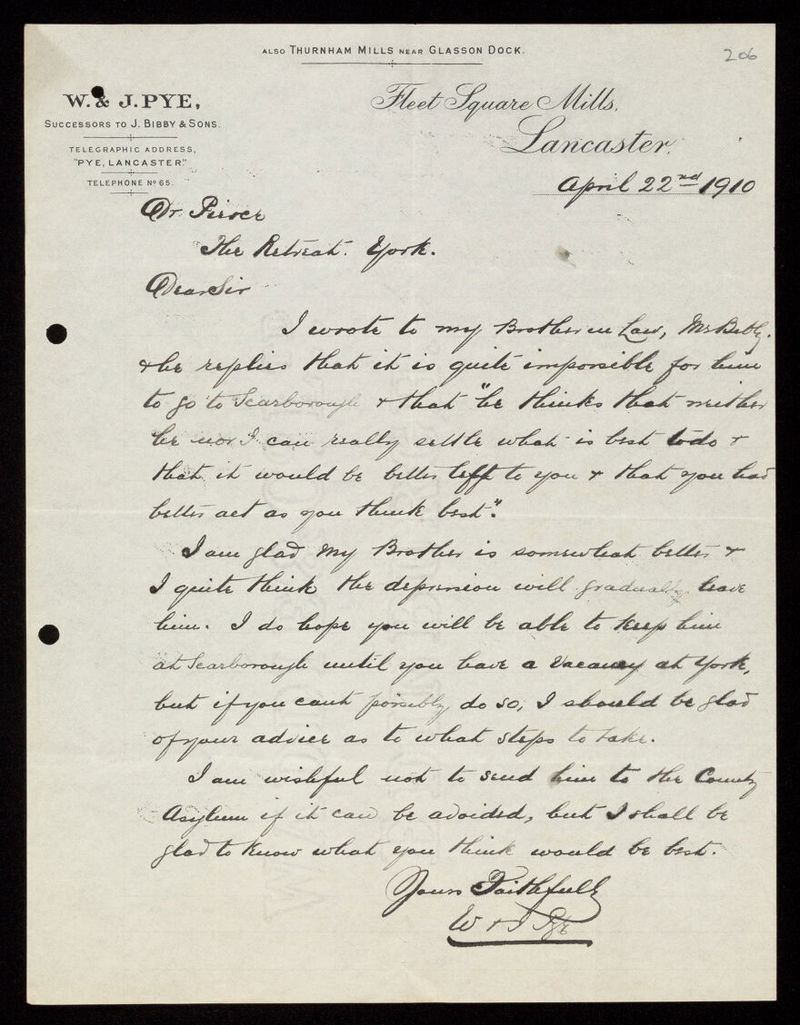 ALSO THURNHAM MILLS NEAR GLASSON DOCK.
206
W. & J. PYE,
SUCCESSORS TO J. BIBBY & SONS.
TELEGRAPHIC ADDRESS,
"PYE, LANCASTER."
TELEPHONE No 65.
Fleet Square Mills,
Lancaster,
April 22nd 1910
Dr. Pierce
The Retreat. York.
Dear Sir
I wrote to my Brother in Law, Mr Bibby.
& he replies that it is quite impossible for him
to go to Scarborough & that "he thinks that neither
he nor I can really settle what is best to do &
that it would be better left to you & that you had
better act as you think best".
I am glad my Brother is somewhat better &
I quite think the depression will gradually leave
him. I do hope you will be able to keep him
at Scarborough until you have a Vacancy at York,
but if you cant possibly do so, I should be glad
of your advice as to what steps to take.
I am wishful not to send him to the County
Asylum if it can be avoided, but I shall be
glad to know what you think would be best.
Yours Faithfully
W & J Pye